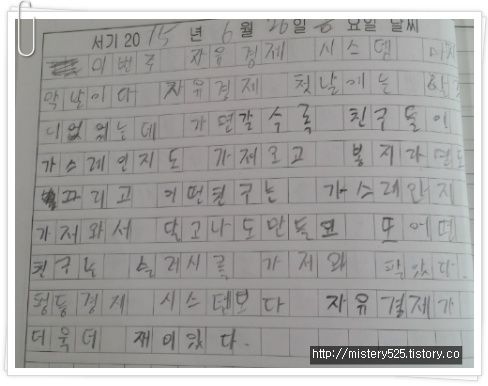 서기 2015년 6월 26일 금요일 날씨
이번주 자유경제 시스템 마지
막 날이다 자유경제 첫날에는 학
니었었는데 가면갈수록 친구들이
가스레인지도 가저오고 봉지라면도
끄리고 어떤친구는 가스레와지
가저와서 달고나도만들고 또 어떤
친구는 슬러시를 가저와 팔았다.
평등경제 시스템보다 자유경제가
더욱더 재미있다.
http://mistery525.tistory.co